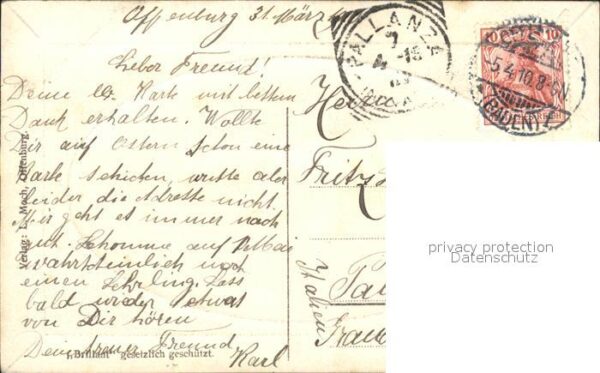 Offenburg 31. März
Lieber Freund!
Deine lb. Karte mit bestem
Dank erhalten. Wollte
Dir auf Ostern schon eine
Karte schicken, wußte aber
leider die Adresse nicht.
Mir geht es immer noch
gut. Bekomme auf Mai
wahrscheinlich noch
einen Lehrling. Lass
bald wieder etwas
von Dir hören
Dein treuer Freund
Karl
„Brillant" gesetzlich geschützt.
Verlag: L. Moch, Offenburg.
PALLANZA
7
4
Herrn
Fritz
Italien
10 10
5.4.10.8-9N.
(BADEN)
privacy protection
Datenschutz